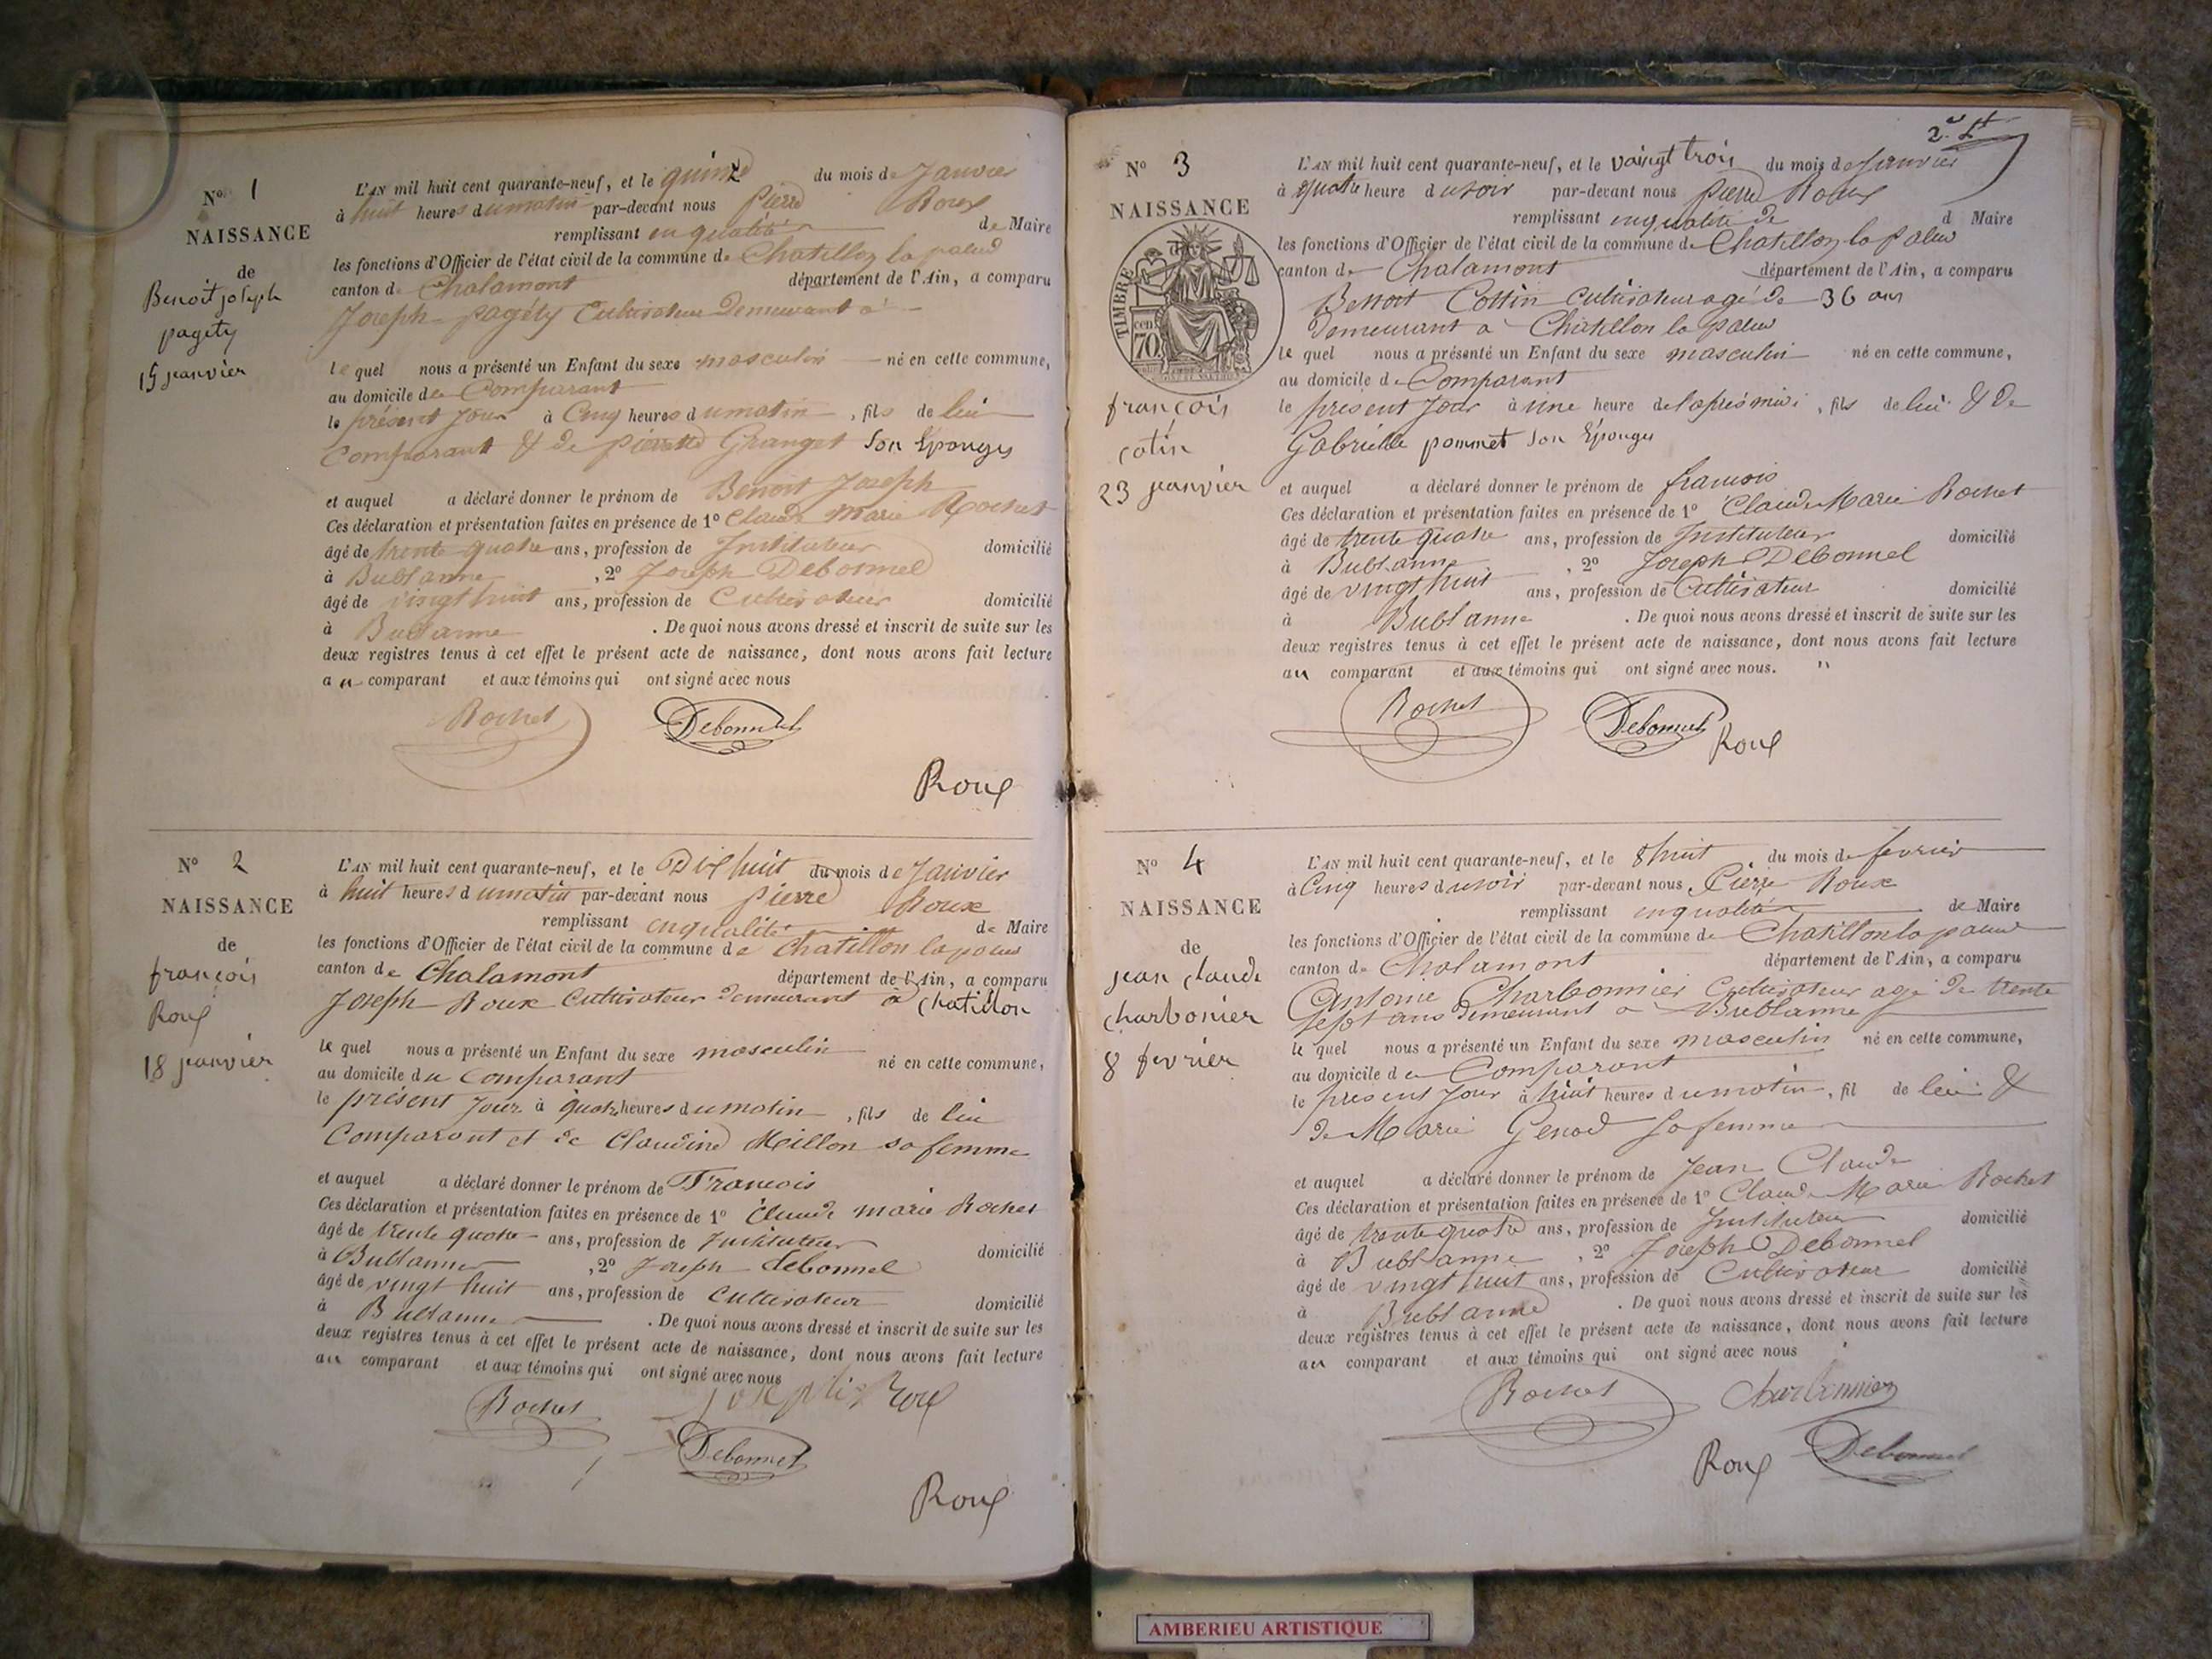 N° 1
NAISSANCE
de
Benoit joseph
pagety
15 janvier
L'AN mil huit cent quarante-neuf, et le quinze du mois de Janvier
à huit heures du matin par-devant nous Pierre Roux
remplissant en qualité de Maire
les fonctions d'Officier de l'état civil de la commune de Chatillon la palud
canton de Chalamont département de l'Ain, a comparu
Joseph pagéty Cultivateur Demeurant a
le quel nous a présenté un Enfant du sexe masculin né en cette commune,
au domicile du Comparant
le présent Jour à Cinq heures du matin, fils de lui
Comparant & de pierrette Granget Son Epouges
et auquel a déclaré donner le prénom de Benoit Joseph
Ces déclaration et présentation faites en présence de 1° Claude Marie Rochet
âgé de trente quatre ans, profession de Instituteur domicilié
à Bublanne, 2° Joseph Debonnel
âgé de vingt huit ans, profession de Cultivateur domicilié
à Bublanne. De quoi nous avons dressé et inscrit de suite sur les
deux registres tenus à cet effet le présent acte de naissance, dont nous avons fait lecture
au comparant et aux témoins qui ont signé avec nous
Rochet Debonnel
Roux
N° 2
NAISSANCE
de
françois
Roux
18 janvier
L'AN mil huit cent quarante-neuf, et le Dix huit du mois de Janvier
à huit heures du matin par-devant nous pierre Roux
remplissant en qualité de Maire
les fonctions d'Officier de l'état civil de la commune de Chatillon la palud
canton de Chalamont département de l'Ain, a comparu
Joseph Roux Cultivateur demeurant à Chatillon
le quel nous a présenté un Enfant du sexe masculin né en cette commune,
au domicile du Comparant
le présent Jour à quatre heures du matin, fils de lui
Comparant et de Claudine Meillon sa femme
et auquel a déclaré donner le prénom de Francois
Ces déclaration et présentation faites en présence de 1° Claude marie Rochet
âgé de trente quatre ans, profession de Instituteur domicilié
à Bublanne, 2° Joseph debonnel
âgé de vingt huit ans, profession de Cultivateur domicilié
à Bublanne. De quoi nous avons dressé et inscrit de suite sur les
deux registres tenus à cet effet le présent acte de naissance, dont nous avons fait lecture
au comparant et aux témoins qui ont signé avec nous
Rochet Joseph Roux
Debonnel
Roux
2e
N° 3
NAISSANCE
TIMBRE
70 cen
françois
cotin
23 janvier
L'AN mil huit cent quarante-neuf, et le vaingt trois du mois de Janvier
à quatre heure du soir par-devant nous pierre Roux
remplissant en qualité de d Maire
les fonctions d'Officier de l'état civil de la commune de Chatillon la palud
canton de Chalamont département de l'Ain, a comparu
Benoit Cottin Cultivateur agé de 36 ans
demeurant a Chatillon la palud
le quel nous a présenté un Enfant du sexe masculin né en cette commune,
au domicile du Comparant
le présent Jour à une heure de l'après midi, fils de lui & De
Gabrielle pommet Son Epouges
et auquel a déclaré donner le prénom de francois
Ces déclaration et présentation faites en présence de 1° Claude Marie Rochet
âgé de trente quatre ans, profession de Instituteur domicilié
à Bublanne, 2° Joseph Debonnel
âgé de vingt huit ans, profession de Cultivateur domicilié
à Bublanne. De quoi nous avons dressé et inscrit de suite sur les
deux registres tenus à cet effet le présent acte de naissance, dont nous avons fait lecture
au comparant et aux témoins qui ont signé avec nous. "
Rochet Debonnel Roux
N° 4
NAISSANCE
de
jean claude
charbonier
8 fevrier
L'AN mil huit cent quarante-neuf, et le 8 huit du mois de fevrier
à Cinq heures du soir par-devant nous Pierre Roux
remplissant en qualité de Maire
les fonctions d'Officier de l'état civil de la commune de Chatillon la palud
canton de Chalamont département de l'Ain, a comparu
Antoine Charbonnier Cultivateur agé de trente
sept ans demeurant a Bublanne
le quel nous a présenté un Enfant du sexe masculin né en cette commune,
au domicile du Comparant
le présent Jour à huit heures du matin, fil de lui &
De Marie Genod sa femme
et auquel a déclaré donner le prénom de Jean Claude
Ces déclaration et présentation faites en présence de 1° Claude Marie Rochet
âgé de trente quatre ans, profession de Instituteur domicilié
à Bublanne, 2° Joseph Debonnel
âgé de vingt huit ans, profession de Cultivateur domicilié
à Bublanne. De quoi nous avons dressé et inscrit de suite sur les
deux registres tenus à cet effet le présent acte de naissance, dont nous avons fait lecture
au comparant et aux témoins qui ont signé avec nous
Rochet Charbonnier
Roux Debonnel
AMBERIEU ARTISTIQUE